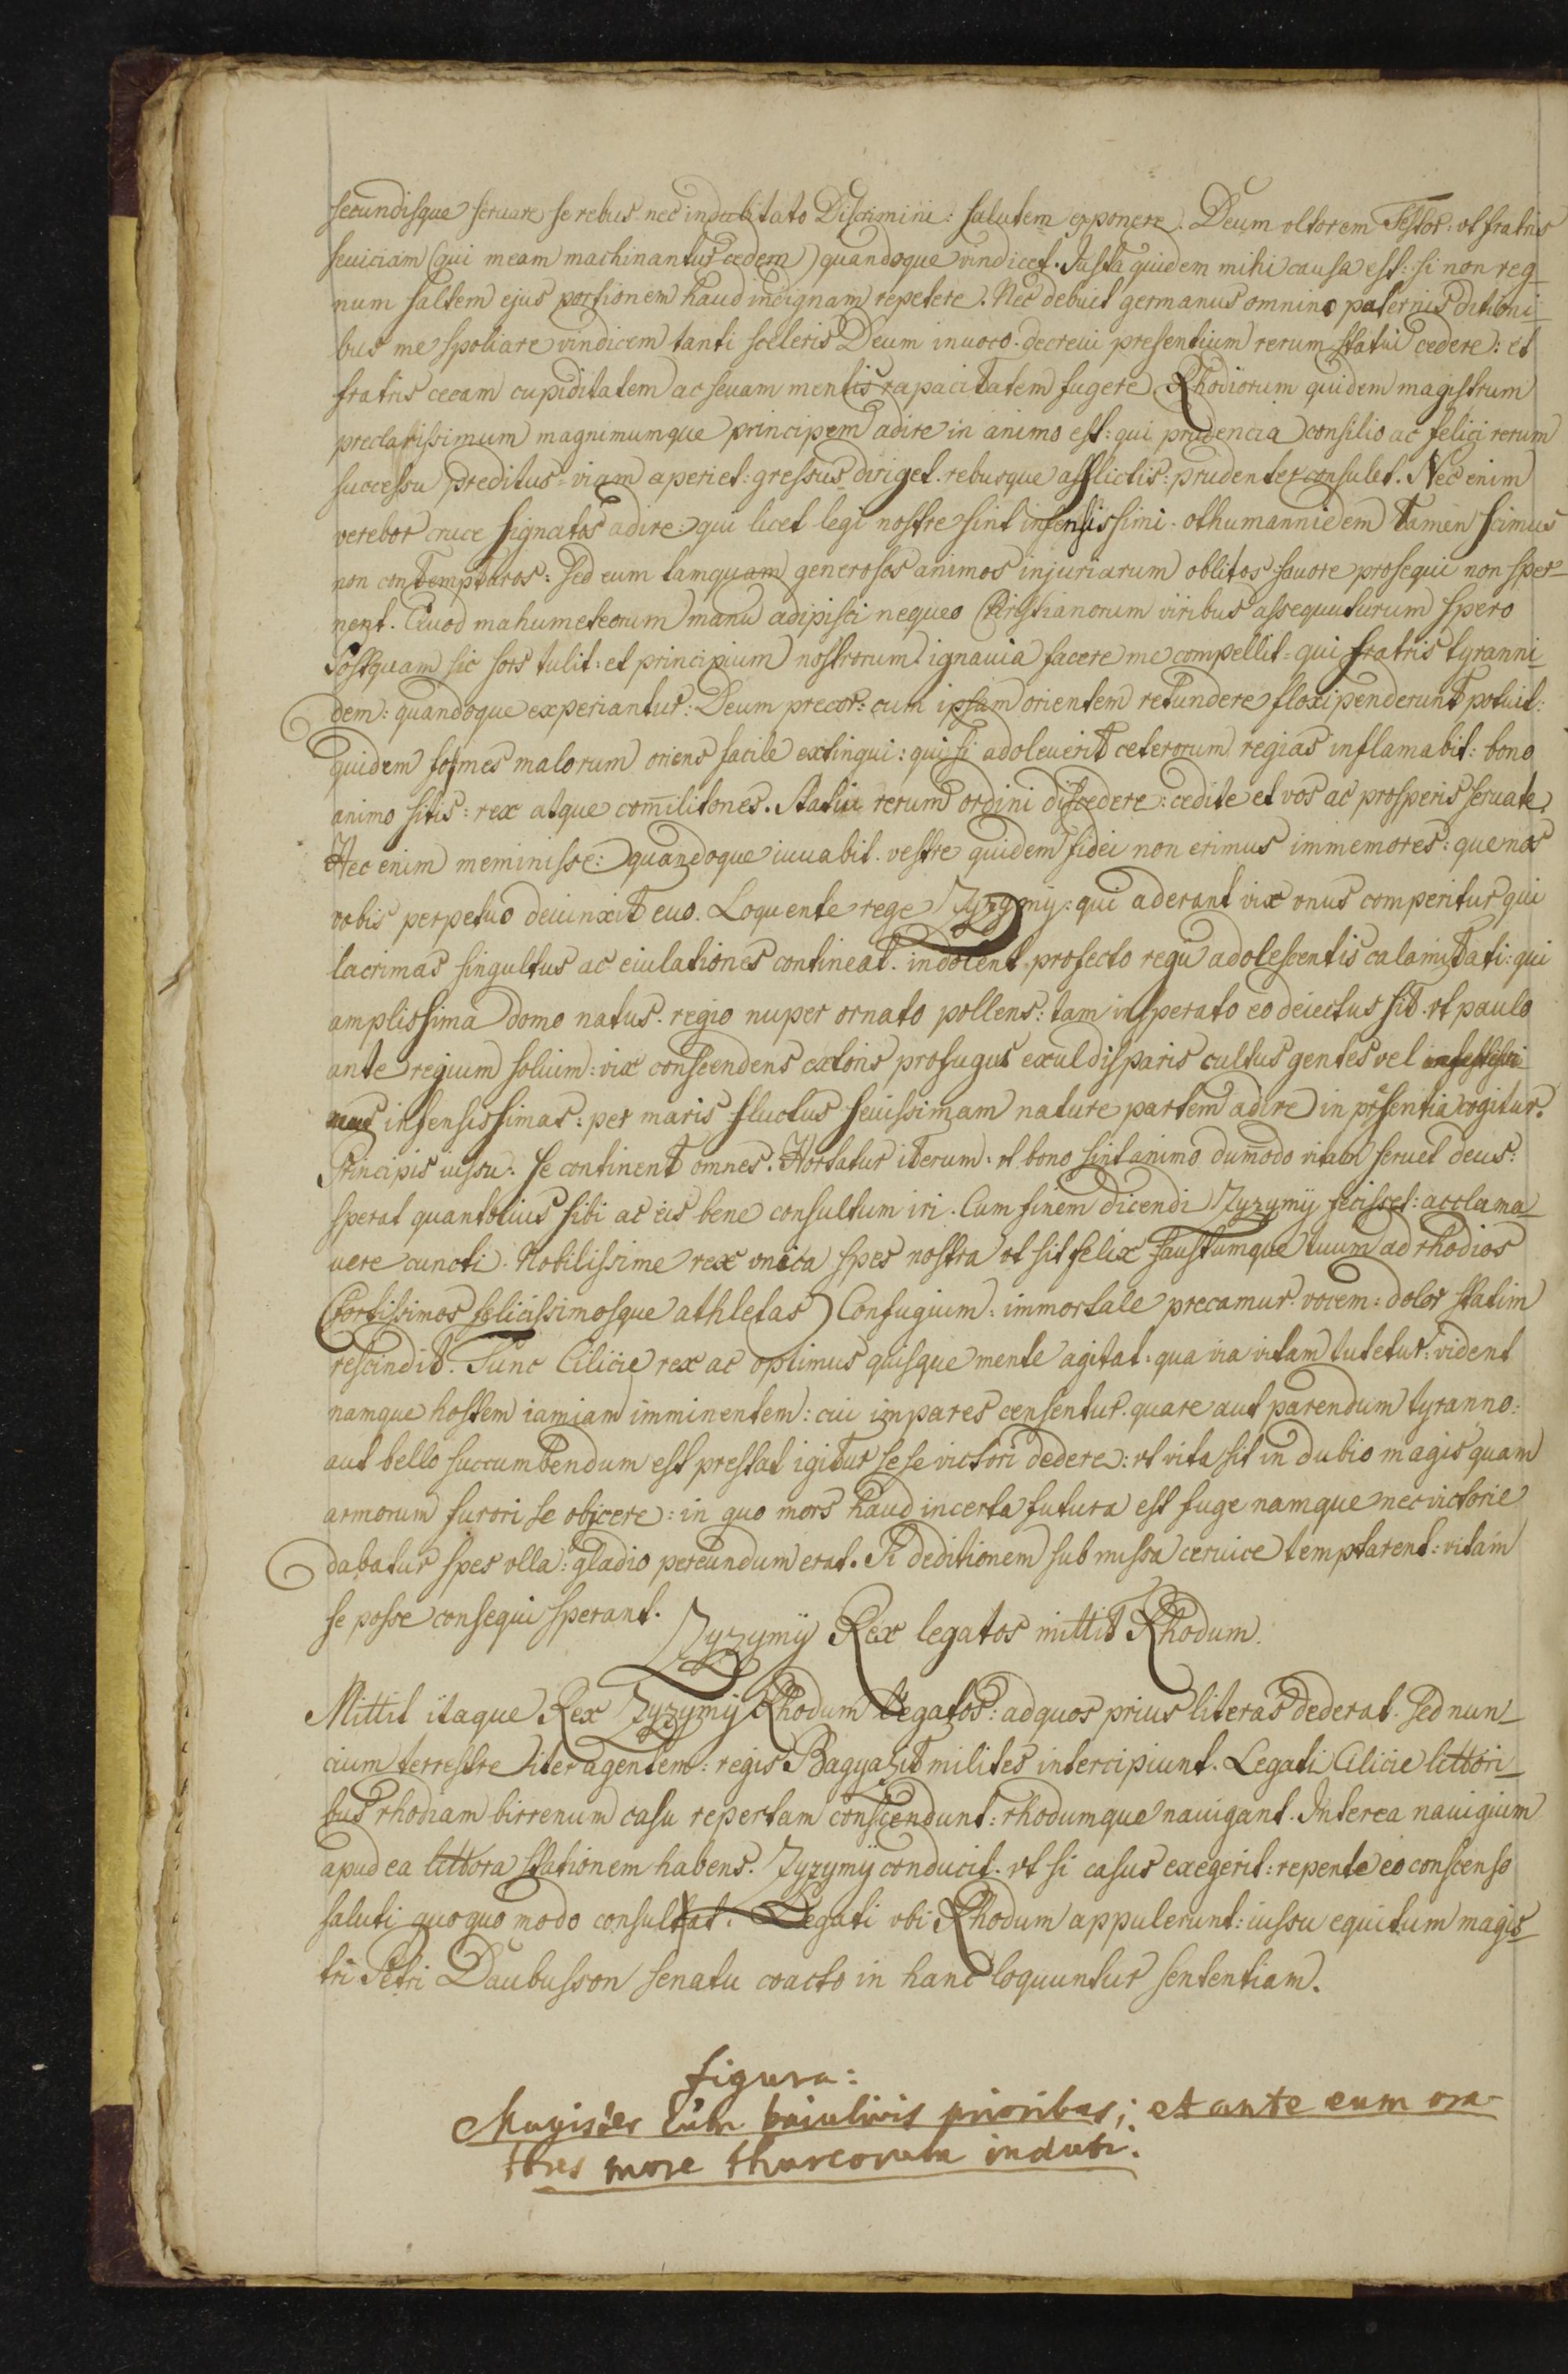 secundisque seruare se rebus nec indubitato Discrimini: salutem exponere. Deum oltorem Testor: vt fratris
seuiciam (qui meam machinantus cedem) quandoque vindicet. Justa quidem mihi causa est: si non reg_
num saltem ejus portionem haud indignam repetere. Nec debuit germanus omnino paternis ditioni_
bus me spoliare vindicem tanti sceleris Deum inuoco. decreui presentium rerum statui cedere: et
fratris cecam cupiditatem ac seuam mentis rapacitatem fugere. Rhodiorum quidem magistrum
preclarissimum magnimumque principem adire in animo est: qui prudencia consilio ac felici rerum
successu preditus viam aperiet: gressus diriget. rebusque afflictis: prudenter consulet. Nec enim
verebor cruce signatos adire: qui licet legi nostre sint infensissimi. othumannidem Tamen scimus
non contempturos: sed eum tamquam generosos animos injuriarum oblitos fauore prosequi non sper_
nent. Quod mahumeteorum manu adipisci nequeo Christianorum viribus assequuturum spero
Postquam sic sors tulit: et principium nostrorum ignauia facere me compellit. qui fratris tyranni_
dem: quandoque experiantur: Deum precor: cum ipsam orientem retundere floxipenderunt potuit:
quidem fomes malorum oriens facile extingui: qui si adoleuerit ceterorum regias inflamabit: bono
animo sitis: rex atque com̄ilitones. Statui rerum ordini discedere: cedite et vos ac prosperis seruate
Hec enim meminisse: quandoque iuuabit. vestre quidem fidei non erimus immemores: que nos
vobis perpetuo deiunxit euo. Loquente rege Zyzymÿ: qui aderant vix vnus comperitur qui
lacrimas singultus ac eiulationes contineat. indolent, profecto regii adolescentis calamitati: qui
amplissima domo natus. regio nuper ornato pollens: tam insperato eo deiectus sit. vt paulo
ante regium solium: vix conscendens extoris profugus exul disparis cultus gentes vel
infensissimas: per maris fluctus seuissimam nature partem adire in presentia cogitur.
Principis iussu: se continent omnes. Hortatur iterum: vt bono sint animo dumodo vitam seruet deus:
sperat quantotius sibi ac eis bene consultum iri. Cum finem dicendi Zyzymÿ fecisset: acclama_
uere cuncti. Nobilissime rex vnica spes nostra vt sit felix faustumque tuum ad rhodios
(fortissimos felicissimosque athletas) Confugium: immortale precamur. vocem: dolor statim
rescindit. Tunc Cilicie rex ac optimus quisque mente agitat: qua via vitam tutetur: vident
namque hostem iamiam imminentem: cui impares censentur. quare aut parendum tyranno:
aut bello succumbendum est prestat igitur sese victori dedere: vt vita sit in dubio magis quam
armorum furori se objcere: in quo mors haud incerta futura est fuge namque nec victorie
dabatur spes vlla: gladio pereundum erat. Si deditionem sub missa ceruice temptarent: vitam
se posse consequi sperant.
Zyzymÿ Rex legatos mittit Rhodum.
Mittit itaque Rex Zyzymÿ Rhodum Legatos: ad quos prius literas dederat. sed nun_
cium terrestre iter agentem: regis Bagyazit milites intercipiunt. Legati Cilicie littori_
bus rhodiam birrenum casu repertam conscendunt: rhodumque nauigant. Interea nauigium
apud ea littora stationem habens. Zyzymÿ conducit. vt si casus exegerit: repente eo conscenso
saluti quoquo modo consultat. Legati vbi Rhodum appulerunt: iussu equitum magis_
tri Petri Daubusson senatu coacto in hanc loquuntur sententiam.
figura:
Magister Cum baiulivis prioribus; et ante eum ora-
tores more thurcorum induti.